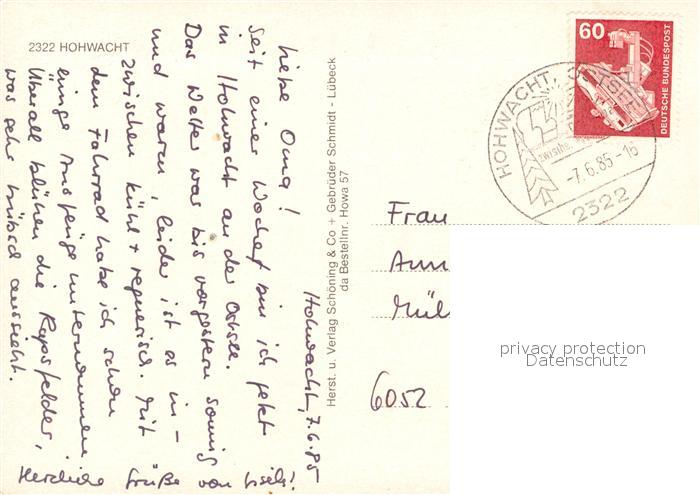 2322 HOHWACHT
Hohwacht, 7.6.85
Liebe Oma!
Seit einer Woche bin ich jetzt
in Hohwacht an der Ostsee.
Das Wetter war bis vorgestern sonnig
und warm, leider ist es in-
zwischen kühl + regnerisch. Mit
dem Fahrrad habe ich schon
einige Ausflüge unternommen.
Überall blühen die Rapsfelder,
was sehr hübsch aussieht.
Herzliche Grüße von
Herst. u. Verlag Schöning & Co + Gebrüder Schmidt - Lübeck
da Bestellnr. Howa 57
60
DEUTSCHE BUNDESPOST
HOHWACHT, OSTSEE
-7.6.85-16
2322
Frau
Ann
Mül
6052
privacy protection
Datenschutz